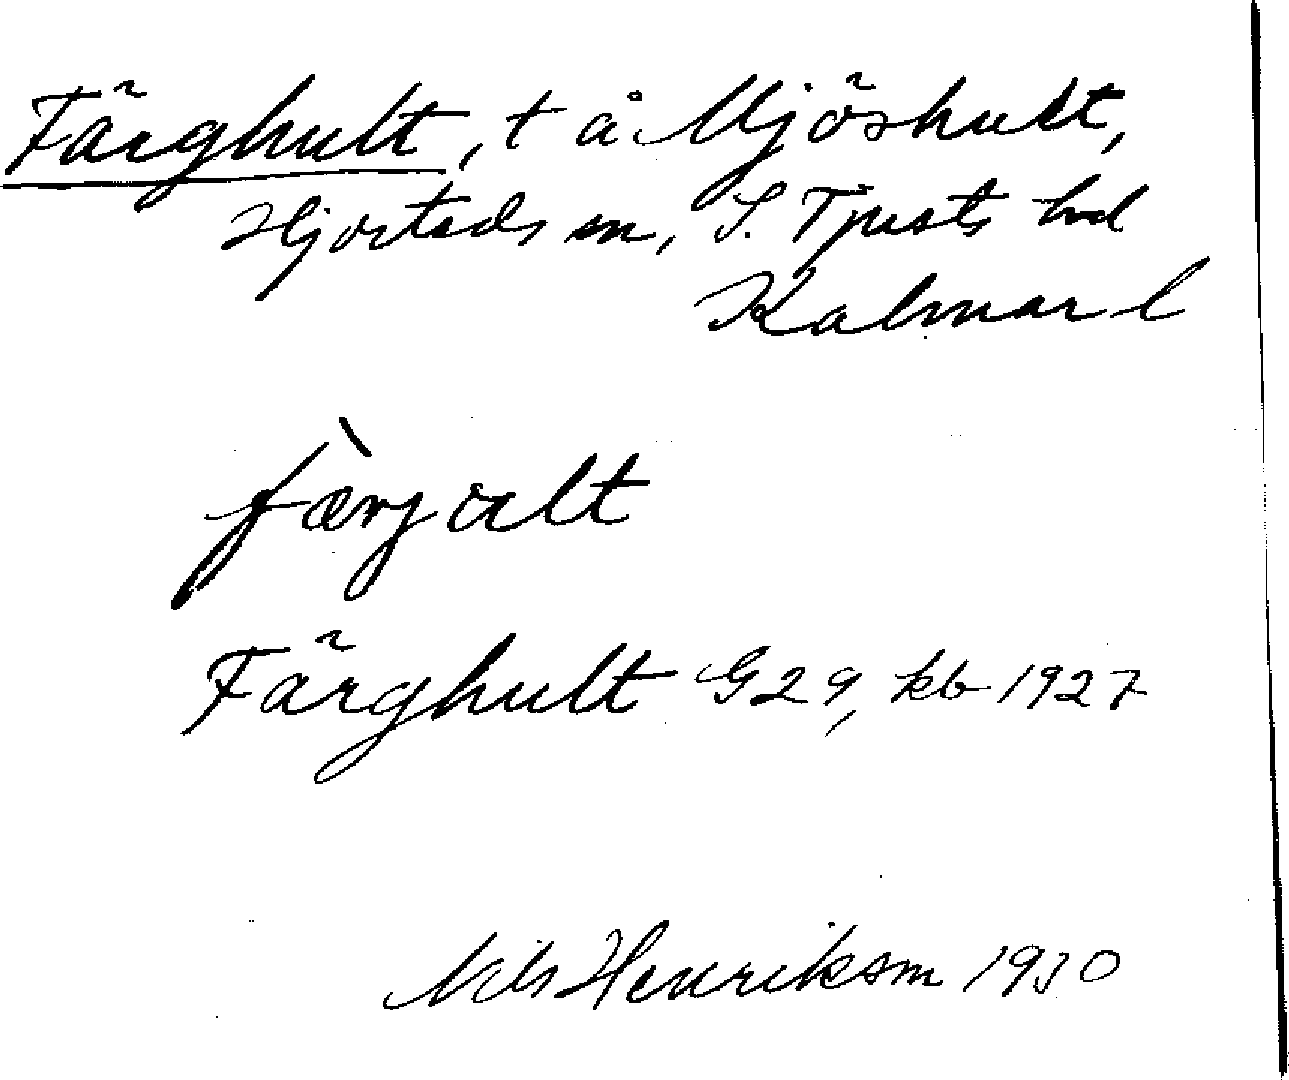 Färghult, t å Mjöshult,
Hjorteds sn, S. Tjusts hd
Kalmar l
fæ̀rjalt
Färghult G29, kb 1927
Nils Henrikson 1930